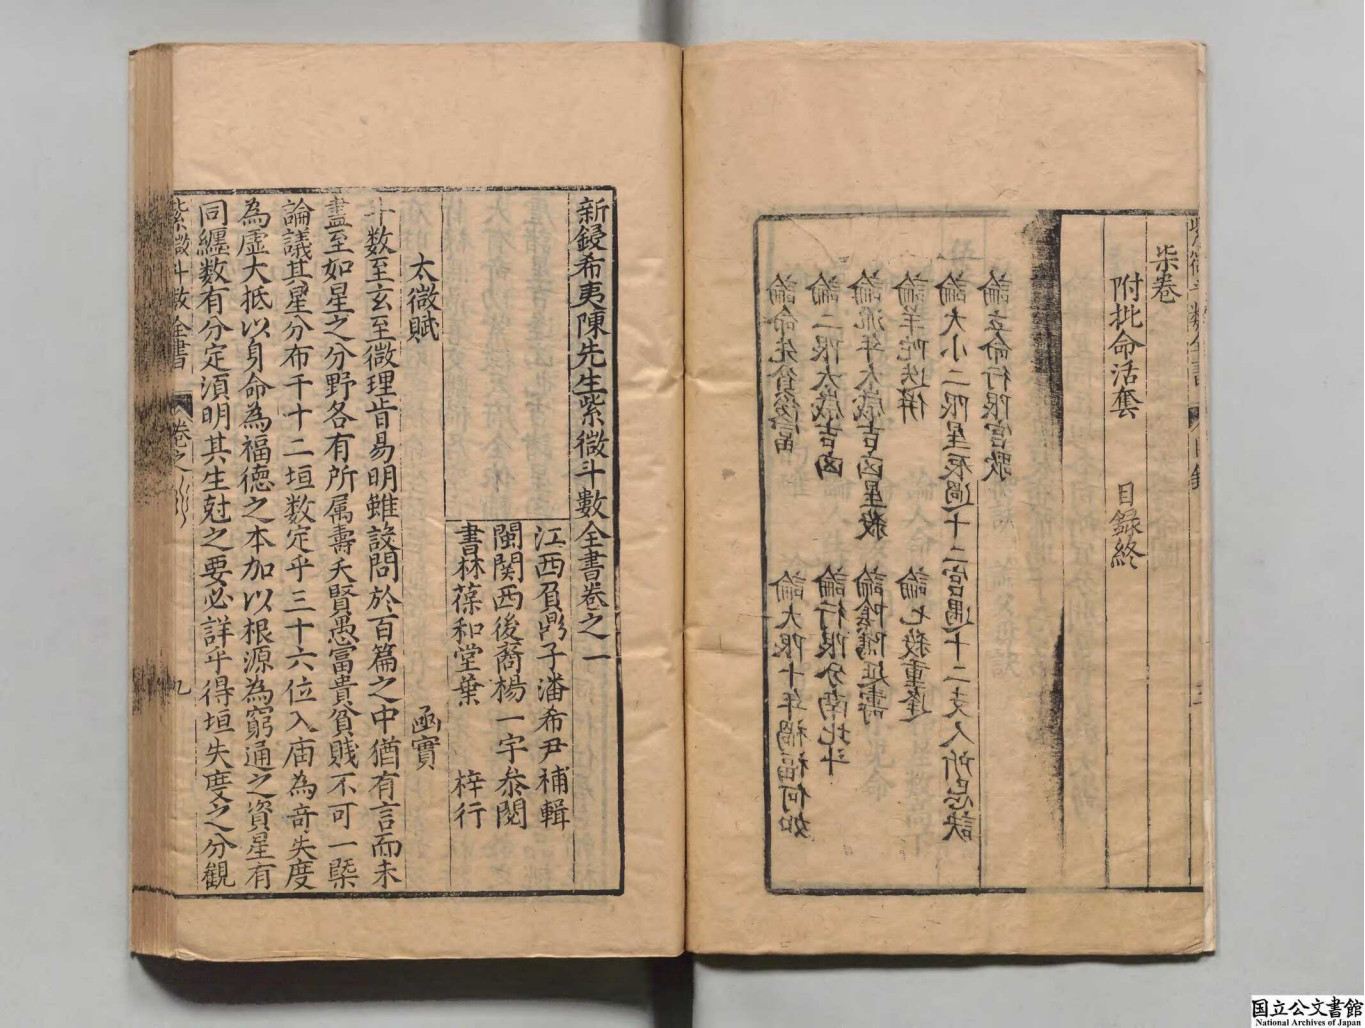 柒卷
附批命活套　目錄終
論立命行限宮歌
論大小二限星辰過十二宮遇十二支人所忌訣
論羊陀迭併　論七殺重逢
論流年太歲吉凶星殺　論陰騭延壽
論二限太歲吉凶　論行限分南北斗
論命先貧後富　論大限十年禍福何如
新鋟希夷陳先生紫微斗數全書卷之一
江西負鼎子潘希尹補輯
閩関西後裔楊一宇叅閱
書林葆和堂葉　梓行
太微賦　函實
十数至玄至微理肯易明雖設問於百篇之中猶有言而未
盡至如星之分野各有所属壽夭賢愚冨貴貧賎不可一槩
論議其星分布千十二垣数定乎三十六位入庙為竒失度
為虛大抵以身命為福德之本加以根源為窮通之資星有
同纏数有分定湏明其生尅之要必詳乎得垣失度之分觀
紫微斗數全書　卷之　九
国立公文書館
National Archives of Japan